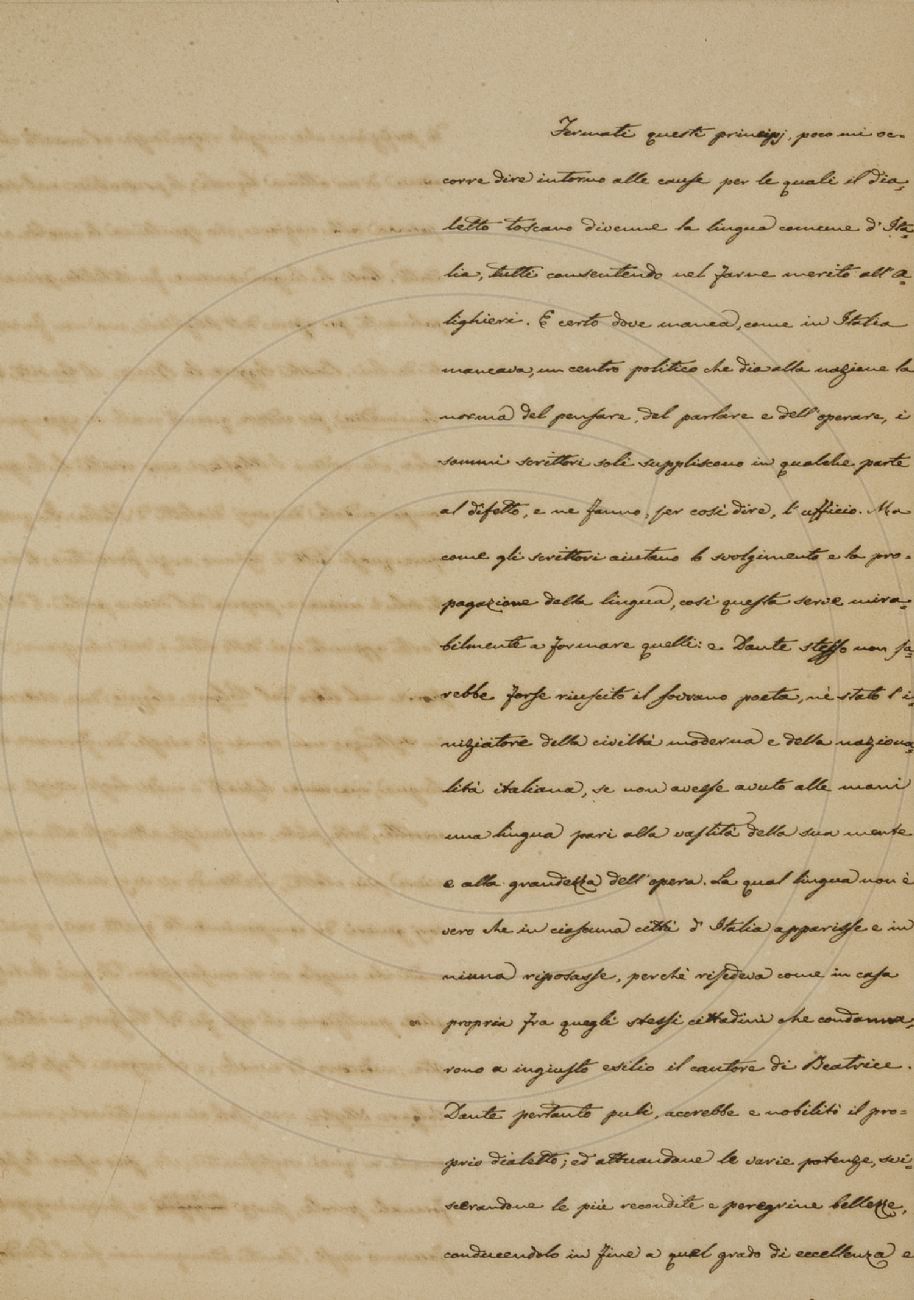 Fermati questi principj, poco mi oc-
corre dire intorno alle cause per le quali il dia-
letto toscano divenne la lingua comune d'Ita-
lia, tutti consentendo nel farne merito all'A-
lighieri. E certo dove manca, come in Italia
mancava, un centro politico che dia alla nazione la
norma del pensare, del parlare e dell'operare, i
sommi scrittori soli suppliscono in qualche parte
al difetto, e ne fanno, per così dire, l'ufficio. Ma
come gli scrittori aiutano lo svolgimento e la pro-
pagazione della lingua, così questa serve mira-
bilmente a formare quelli: e Dante stesso non sa-
rebbe forse riuscito il sovrano poeta, nè stato l'i-
niziatore della civiltà moderna e della naziona-
lità italiana, se non avesse avuto alle mani
una lingua pari alla vastità della sua mente
e alla grandezza dell'opera. La qual lingua non è
vero che in ciascuna città d'Italia apparisse e in
niuna riposasse, perchè risedeva come in casa
propria fra quegli stessi cittadini che condanna-
rono a ingiusto esilio il cantore di Beatrice.
Dante pertanto pulì, accrebbe e nobilitò il pro-
prio dialetto; ed attuandone le varie potenze, svi-
scerandone le più recondite e peregrine bellezze,
conducendolo in fine a quel grado di eccellenza e